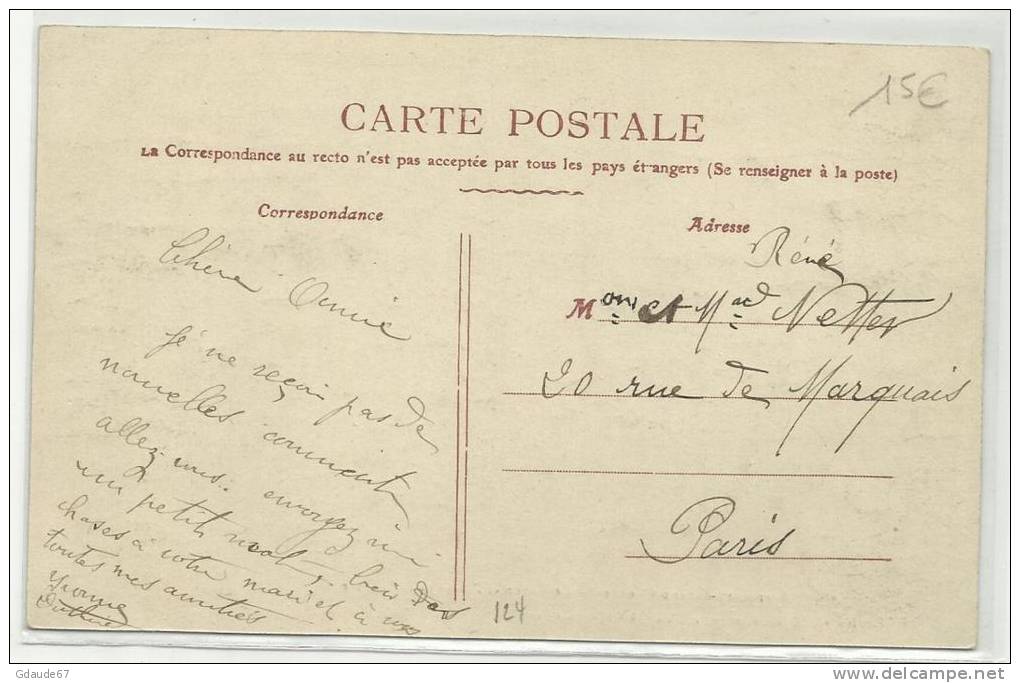 15€
CARTE POSTALE
La Correspondance au recto n'est pas acceptée par tous les pays étrangers (Se renseigner à la poste)
Correspondance
Chère Amie
Je ne reçoi pas de
nouvelles comment
allez-vous. envoyez moi
un petit mot, bien des
choses à votre mari et à vous
toutes mes amitiés
Yvonne
124
Adresse
Réné
Mon et Mad Netter
20 rue de Marquais
Paris
Gdaude67
delcampe.net